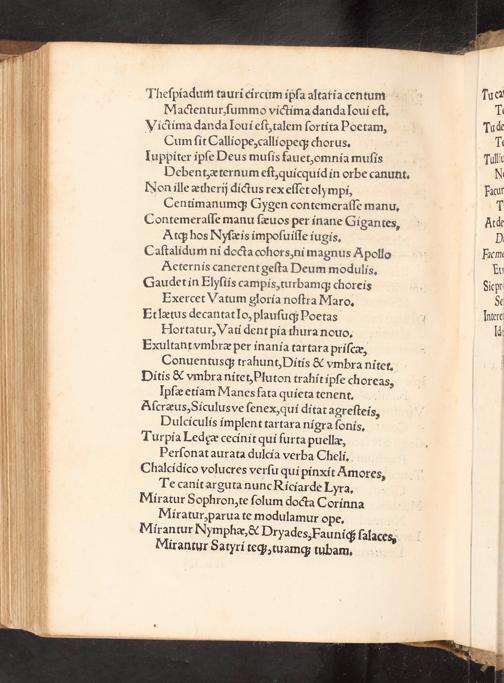 Thespiadum tauri circum ipsa altaria centum
Mactentur, summo victima danda Ioui est.
Victima danda Ioui est, talem sortita Poetam,
Cum sit Calliope, calliopeqꝫ chorus.
Iuppiter ipse Deus musis fauet, omnia musis
Debent, æternum est, quicquid in orbe canunt.
Non ille ætherij dictus rex esset olympi,
Centimanumqꝫ Gygen contemerasse manu.
Contemerasse manu sæuos per inane Gigantes,
Atqꝫ hos Nysæis imposuisse iugis.
Castalidum ni docta cohors, ni magnus Apollo
Aeternis canerent gesta Deum modulis.
Gaudet in Elysiis campis, turbamqꝫ choreis
Exercet Vatum gloria nostra Maro.
Et lætus decantat Io, plausuqꝫ Poetas
Hortatur, Vati dent pia thura nouo.
Exultant vmbræ per inania tartara priscæ,
Conuentusqꝫ trahunt, Ditis & vmbra nitet.
Ditis & vmbra nitet, Pluton trahit ipse choreas,
Ipsæ etiam Manes fata quieta tenent.
Ascræus, Siculusve senex, qui ditat agresteis,
Dulciculis implent tartara nigra sonis.
Turpia Ledęæ cecinit qui furta puellæ,
Personat aurata dulcia verba Cheli.
Chalcidico volucres versu qui pinxit Amores,
Te canit arguta nunc Riciarde Lyra.
Miratur Sophron, te solum docta Corinna
Miratur, parua te modulamur ope.
Mirantur Nymphæ, & Dryades, Fauniqꝫ salaces,
Mirantur Satyri teqꝫ, tuamqꝫ tubam.
Te
Te
Tulliu
Facun
At de
Fac me
Sic pro
Se